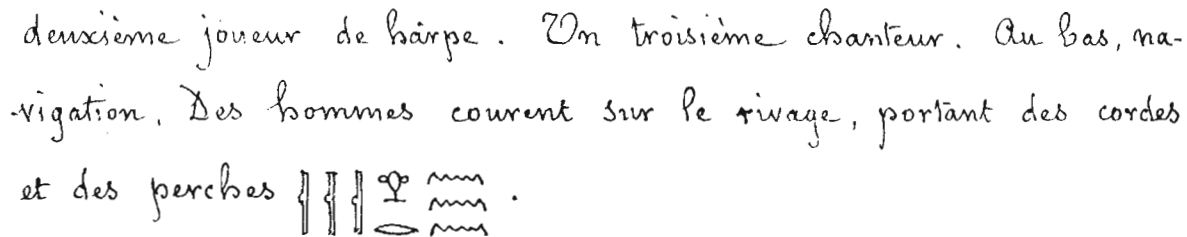 deuxième joueur de harpe. Un troisième chanteur. Au bas, na-
vigation. Des hommes courent sur le rivage, portant des cordes
et des perches .